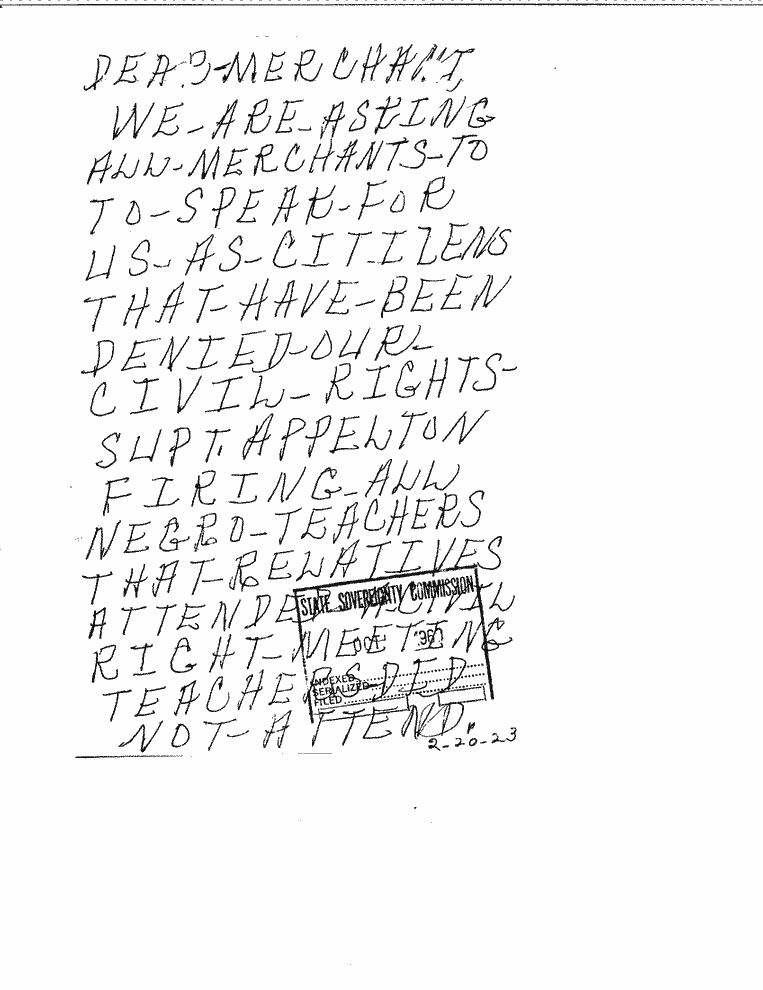 DEAR-MERCHANT,
WE-ARE-ASKING
ALL-MERCHANTS-TO
TO-SPEAK-FOR
US-AS-CITIZENS
THAT-HAVE-BEEN
DENIED-OUR-
CIVIL-RIGHTS-
SUPT. APPELTON
FIRING-ALL
NEGRO-TEACHERS
THAT-RELATIVES
ATTENDED-A-CIVIL
RIGHT-MEETING
TEACHERS DID
NOT-ATTEND.
STATE SOVEREIGNTY COMMISSION
OCT
INDEXED
SERIALIZED
FILED
2-20-23